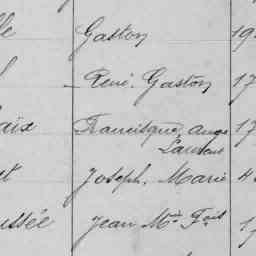 lle Gaston 19
l René Gaston 17
aix Francisque, Ange 17
Laurent
et Joseph, Marie 4
ussée Jean Mie Fois 17